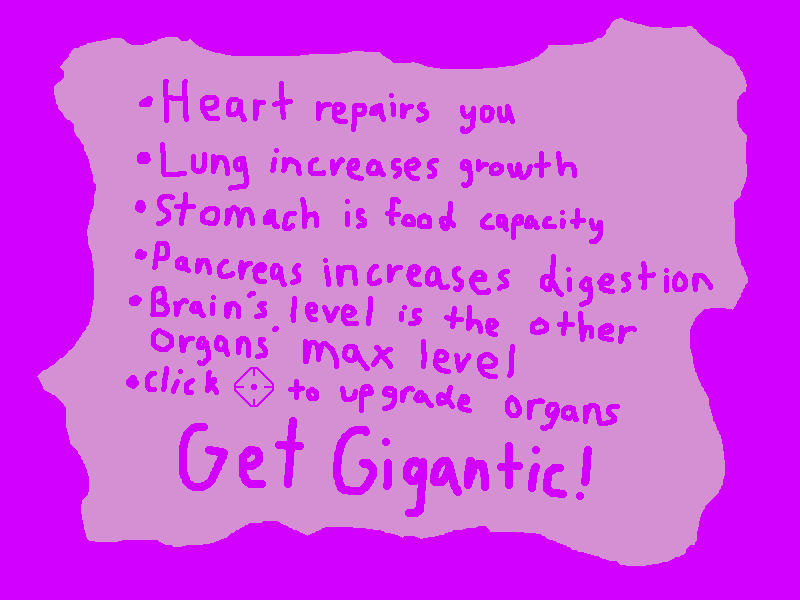 •Heart repairs you
•Lung increases growth
•Stomach is food capacity
•Pancreas increases digestion
•Brain's level is the other
organs' max level
•Click to upgrade organs
Get Gigantic!